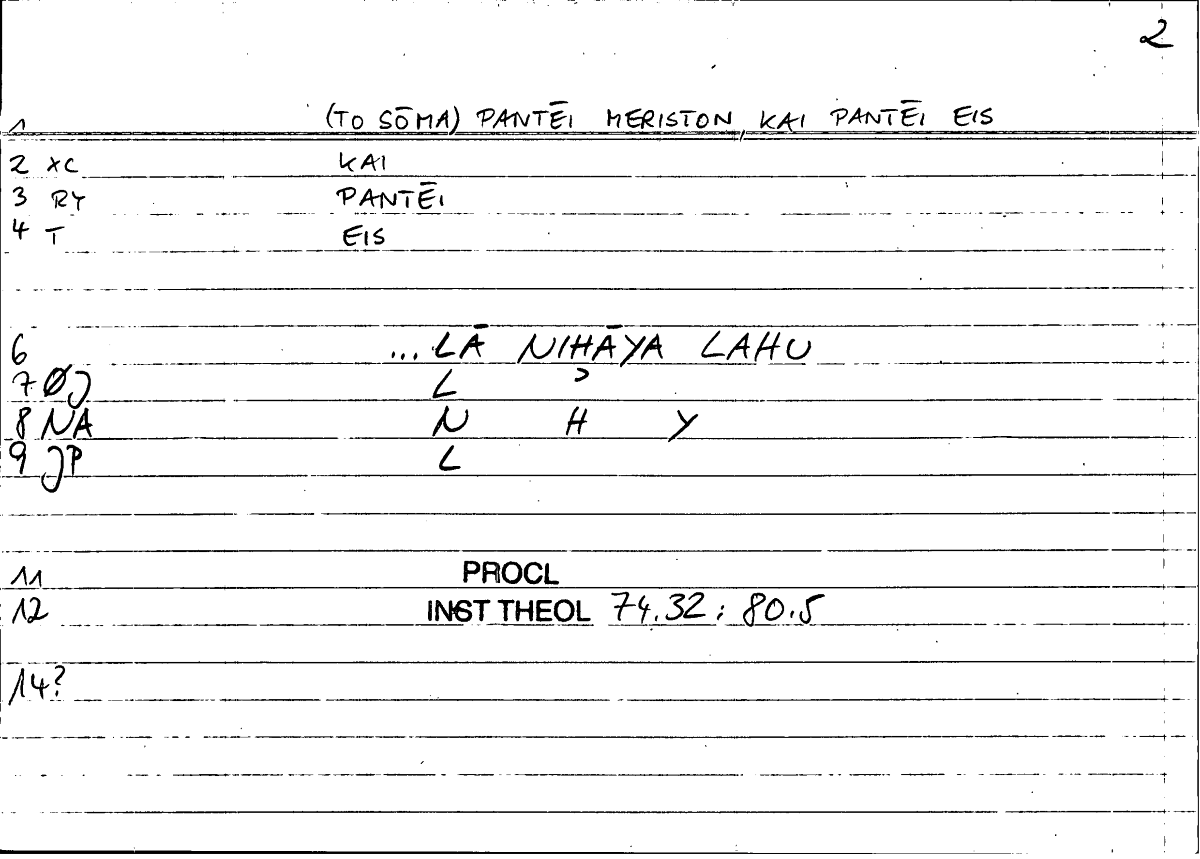 2
1 (TO SŌMA) PANTĒI MERISTON, KAI PANTĒI EIS
2 XC KAI
3 RY PANTĒI
4 T EIS
6 ... LĀ NIHĀYA LAHU
7 ØJ L ʾ
8 NA N H Y
9 JP L
11 PROCL
12 INST THEOL 74.32 ; 80.5
14?